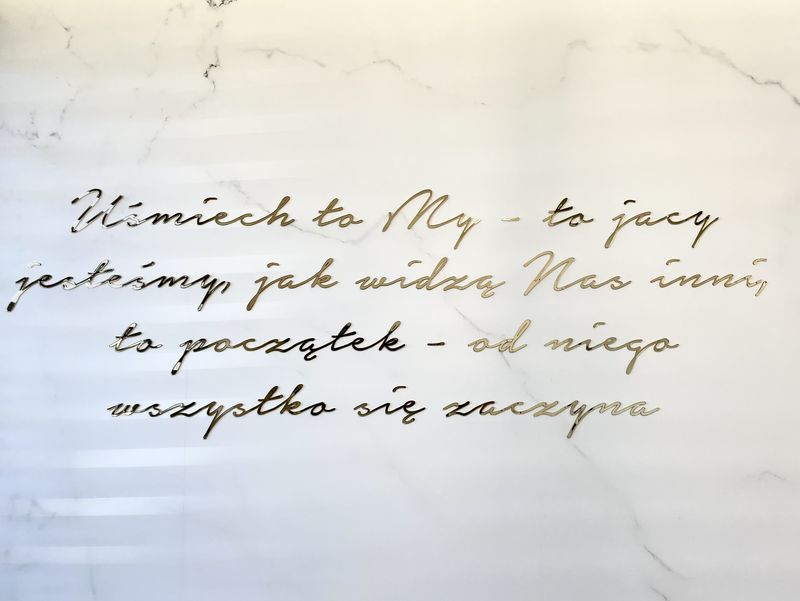 Uśmiech to My - to jacy
jesteśmy, jak widzą Nas inni,
to początek - od niego
wszystko się zaczyna